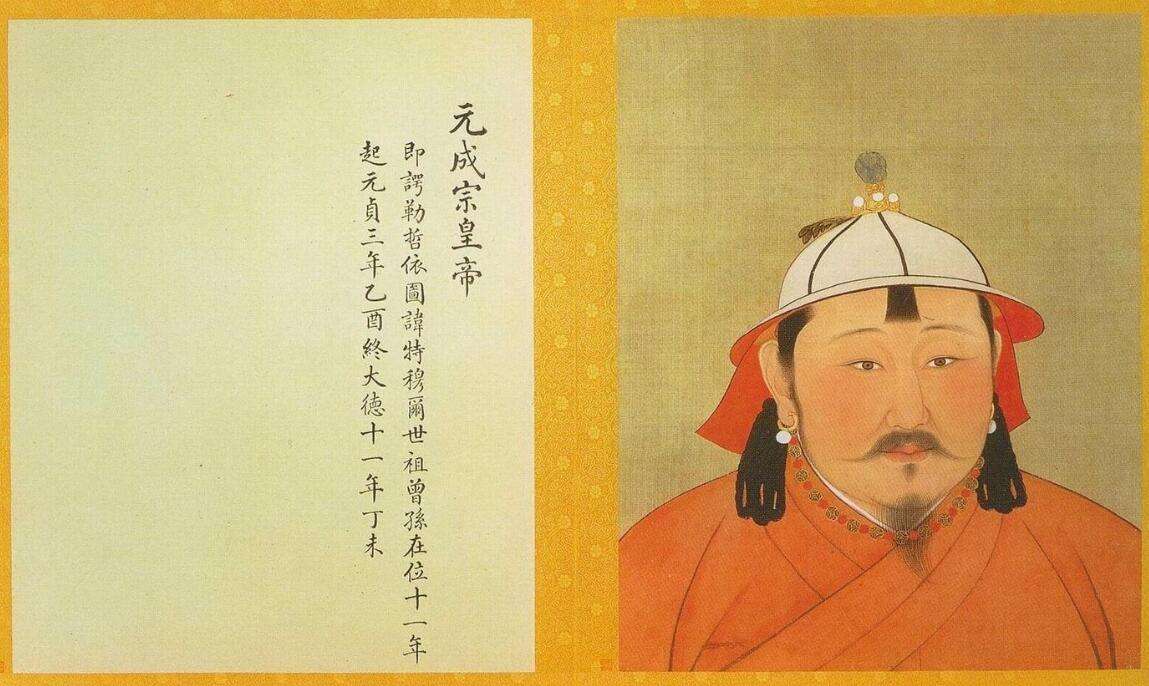 元成宗皇帝
即諤勒哲依圖諱特穆爾世祖曾孫在位十一年
起元貞三年乙酉終大德十一年丁未